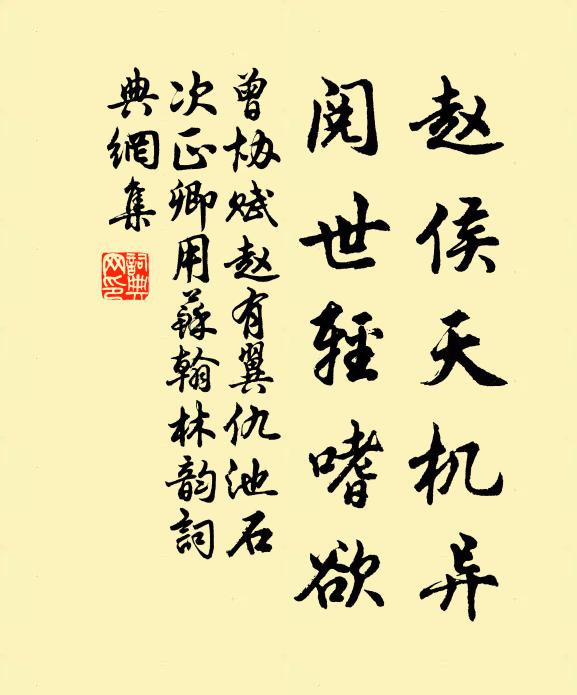 赵侯天机异
阅世轻嗜欲
曾协赋赵有翼仇池石
次正卿用蘇翰林韵詞
典網集
詞典網印